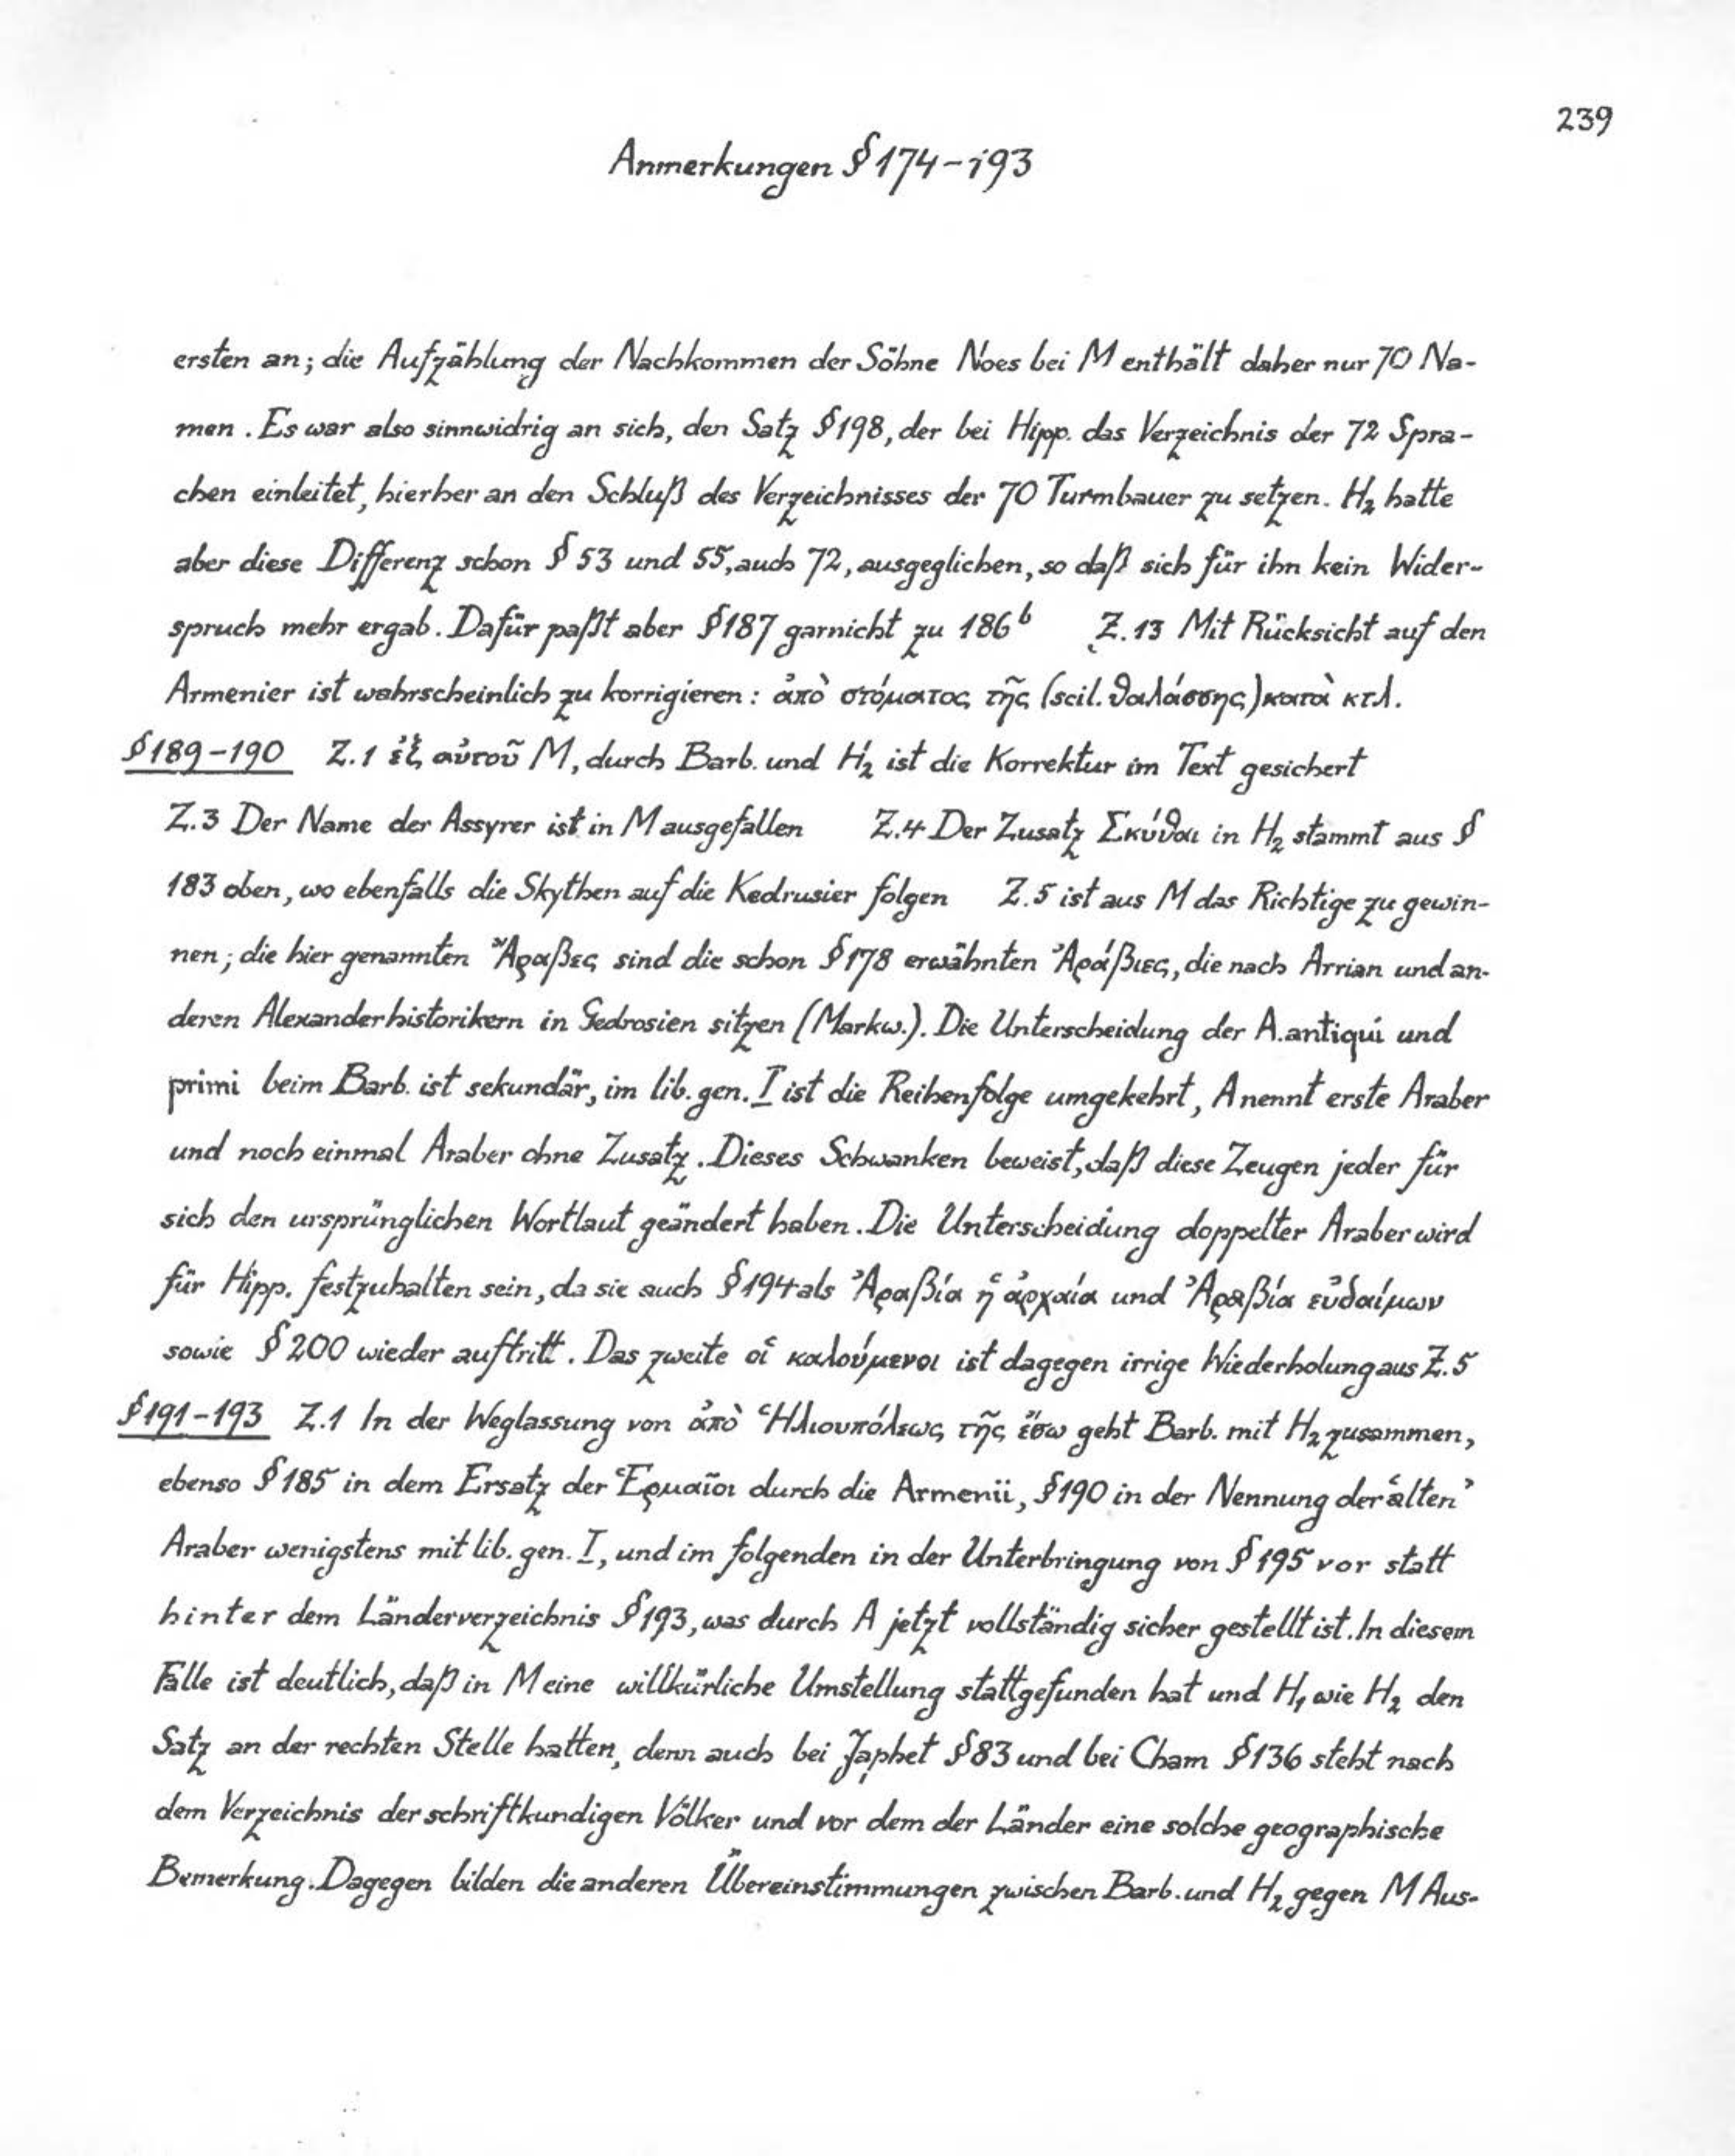 239
Anmerkungen § 174-193
ersten an; die Aufzählung der Nachkommen der Söhne Noes bei M enthält daher nur 70 Na-
men. Es war also sinnwidrig an sich, den Satz § 198, der bei Hipp. das Verzeichnis der 72 Spra-
chen einleitet, hierher an den Schluß des Verzeichnisses der 70 Turmbauer zu setzen. H₂ hatte
aber diese Differenz schon § 53 und 55, auch 72, ausgeglichen, so daß sich für ihn kein Wider-
spruch mehr ergab. Dafür paßt aber § 187 garnicht zu 186ᵇ Z. 13 Mit Rücksicht auf den
Armenier ist wahrscheinlich zu korrigieren: ἀπὸ στόματος τῆς (scil. θαλάσσης) κατὰ κτλ.
§ 189-190 Z. 1 ἐξ αὐτοῦ M, durch Barb. und H₂ ist die Korrektur im Text gesichert
Z. 3 Der Name der Assyrer ist in M ausgefallen Z. 4 Der Zusatz Σκύθαι in H₂ stammt aus §
183 oben, wo ebenfalls die Skythen auf die Kedrusier folgen Z. 5 ist aus M das Richtige zu gewin-
nen; die hier genannten Ἄραβες sind die schon § 178 erwähnten Ἀράβιες, die nach Arrian und an-
deren Alexanderhistorikern in Gedrosien sitzen (Markw.). Die Unterscheidung der A. antiqui und
primi beim Barb. ist sekundär, im lib. gen. I ist die Reihenfolge umgekehrt, A nennt erste Araber
und noch einmal Araber ohne Zusatz. Dieses Schwanken beweist, daß diese Zeugen jeder für
sich den ursprünglichen Wortlaut geändert haben. Die Unterscheidung doppelter Araber wird
für Hipp. festzuhalten sein, da sie auch § 194 als Ἀραβία ἡ ἀρχαία und Ἀραβία εὐδαίμων
sowie § 200 wieder auftritt. Das zweite οἱ καλούμενοι ist dagegen irrige Wiederholung aus Z. 5
§ 191-193 Z. 1 In der Weglassung von ἀπὸ Ἡλιουπόλεως τῆς ἔσω geht Barb. mit H₂ zusammen,
ebenso § 185 in dem Ersatz der Ἑρμαῖοι durch die Armenii, § 190 in der Nennung der ‘alten’
Araber wenigstens mit lib. gen. I, und im folgenden in der Unterbringung von § 195 vor statt
hinter dem Länderverzeichnis § 193, was durch A jetzt vollständig sicher gestellt ist. In diesem
Falle ist deutlich, daß in M eine willkürliche Umstellung stattgefunden hat und H₁ wie H₂ den
Satz an der rechten Stelle hatten, denn auch bei Japhet § 83 und bei Cham § 136 steht nach
dem Verzeichnis der schriftkundigen Völker und vor dem der Länder eine solche geographische
Bemerkung. Dagegen bilden die anderen Übereinstimmungen zwischen Barb. und H₂ gegen M Aus-